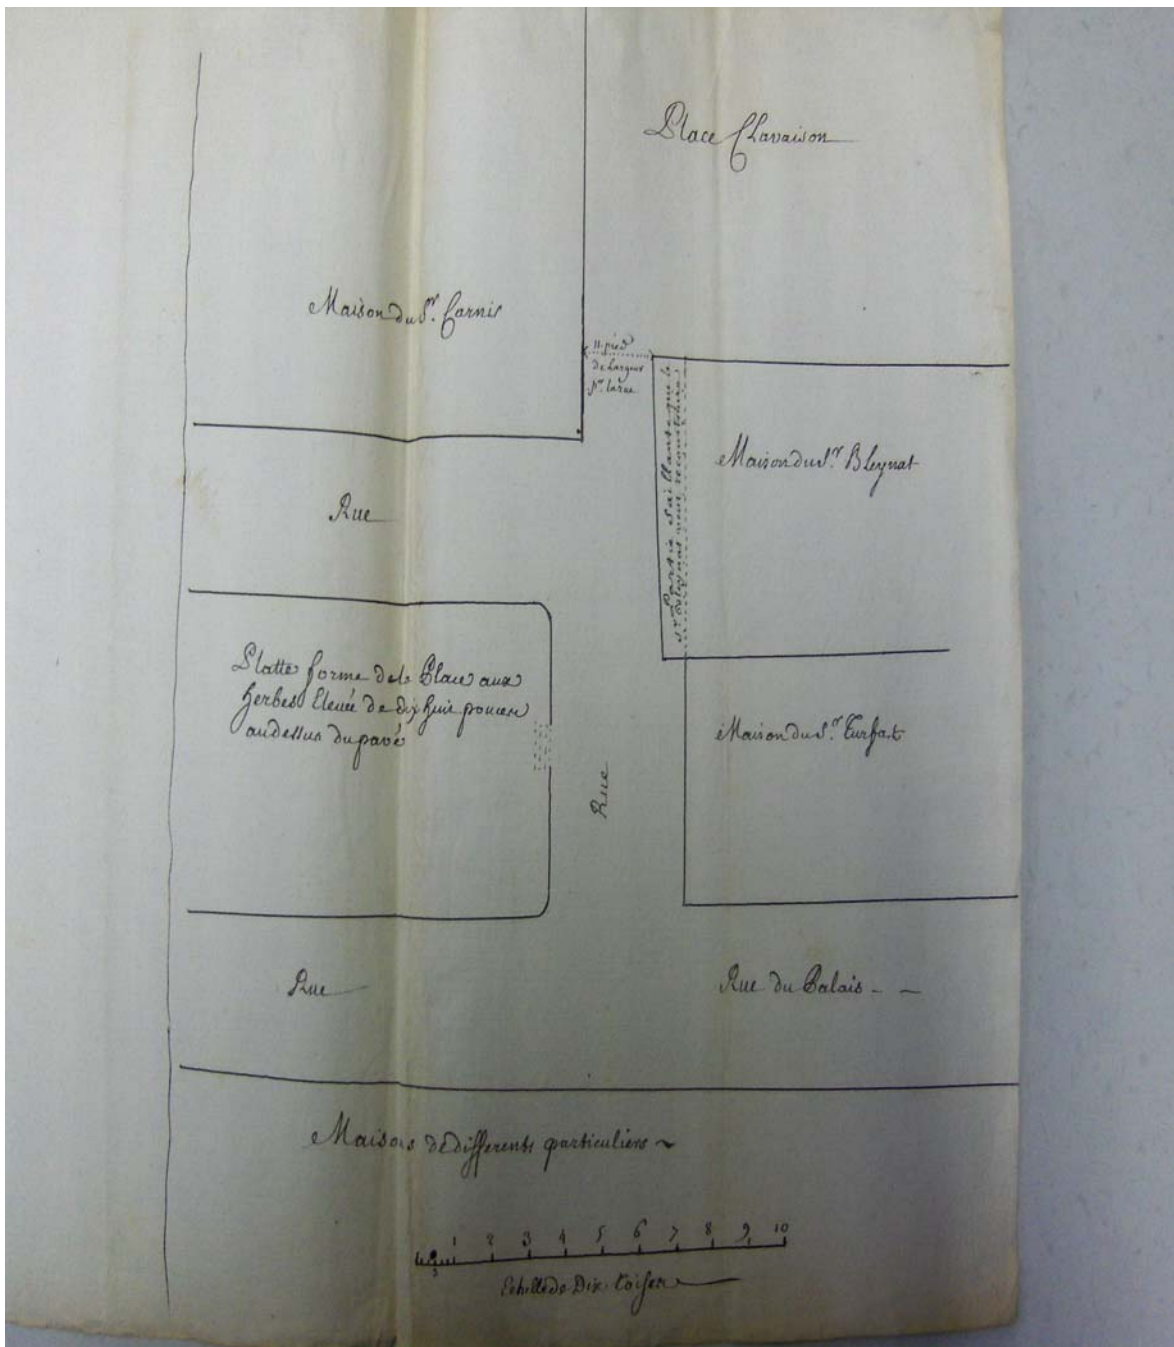 Place Clavaison
Maison du Sr. Carnis
11 pied
de largeur
pr. larue
Partie Saillante que le
Sr Bleynat veut reconstruire
Maison du Sr. Bleynat
Rue
Platte forme dela Place aux
herbes Elevée de dix huit pouces
audessus dupavé
Maison du Sr. Turfat
Rue
Rue
Rue du Palais - -
Maisons de differents particuliers ~
6 3 1 2 3 4 5 6 7 8 9 10
Echelle de Dix toises